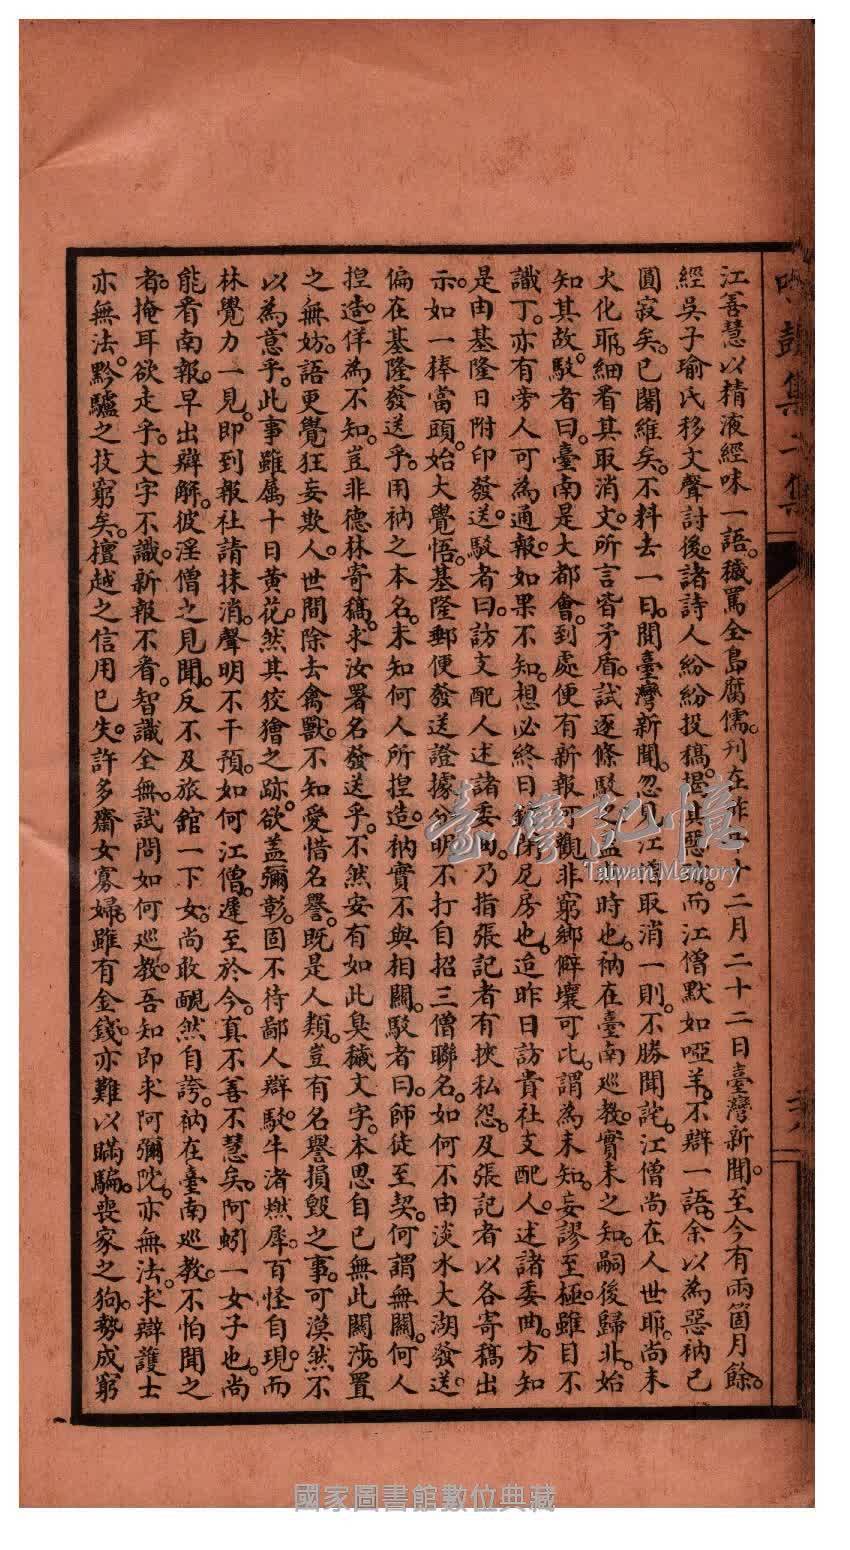 鼓集二集
江善慧以精液經味一語。穢罵全島腐儒。刊在昨年十二月二十二日臺灣新聞。至今有兩箇月餘。
經吳子瑜氏移文聲討後。諸詩人紛紛投稿。揭其惡跡。而江僧默如啞羊。不辯一語。余以為惡衲已
圓寂矣。已闍維矣。不料去一日。閱臺灣新聞。忽見江僧取消一則。不勝聞詫。江僧尚在人世耶。尚未
火化耶。細看其取消文。所言皆矛盾。試逐條駁之。盖斯時也。衲在臺南巡教。實未之知。嗣後歸北。始
知其故。駁者曰。臺南是大都會。到處便有新報可觀。非窮鄉僻壤可比。謂為未知。妄謬至極。雖目不
識丁。亦有旁人可為通報。如果不知。想必終日鎖閉尼房也。追昨日訪貴社支配人。述諸委曲。方知
是由基隆日附印發送。駁者曰。訪支配人述諸委曲。乃指張記者有挾私怨。及張記者以各寄稿出
示。如一棒當頭。始大覺悟。基隆郵便發送證據分明。不打自招三僧聯名。如何不由淡水大湖發送。
偏在基隆發送乎。用衲之本名。未知何人所揑造。衲實不與相關。駁者曰。師徒至契。何謂無關。何人
揑造。佯為不知。豈非德林寄稿。求汝署名發送乎。不然安有如此臭穢文字。本思自己無此關涉。置
之無妨。語更覺狂妄欺人。世間除去禽獸。不知愛惜名譽。既是人類。豈有名譽損毀之事。可漠然不
以為意乎。此事雖屬十日黃花。然其狡獪之跡。欲盖彌彰。固不待鄙人辯駁。牛渚燃犀。百怪自現。而
林覺力一見。即到報社請抹消。聲明不干預。如何江僧。遲至於今。真不善不慧矣。阿蚓一女子也。尚
能看南報。早出辯解。彼淫僧之見聞。反不及旅館一下女。尚敢靦然自誇。衲在臺南巡教。不怕聞之
者。掩耳欲走乎。文字不識。新報不看。智識全無。試問如何巡教。吾知即求阿彌陀。亦無法。求辯護士
亦無法。黔驢之技窮矣。檀越之信用已失。許多齋女寡婦。雖有金錢。亦難以瞞騙。喪家之狗。勢成窮
臺灣記憶
Taiwan Memory
國家圖書館數位典藏